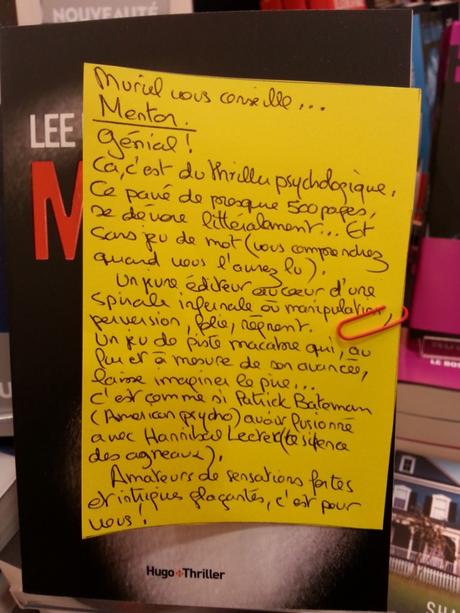 NOUVEAUTÉ
LEE
M
Muriel vous conseille...
Mentor.
Génial !
Ca, c'est du thriller psychologique.
Ce pavé de presque 500 pages,
se dévore littéralement... Et
sans jeu de mot (vous comprendrez
quand vous l'aurez lu).
Un jeune éditeur au cœur d'une
spirale infernale où manipulation,
perversion, folie, règnent.
Un jeu de piste macabre qui, au
fur et à mesure de son avancée,
laisse imaginer le pire...
c'est comme si Patrick Bateman
(American psycho) avait fusionné
avec Hannibal Lecter (Le silence
des agneaux).
Amateurs de sensations fortes
et intrigues glaçantes, c'est pour
vous !
Hugo Thriller
LE BO
SHA